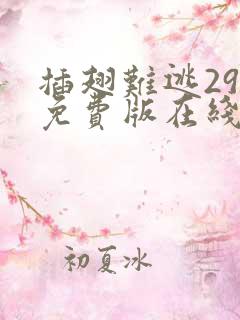 插翅難逃29
免費版在綫
初夏冰